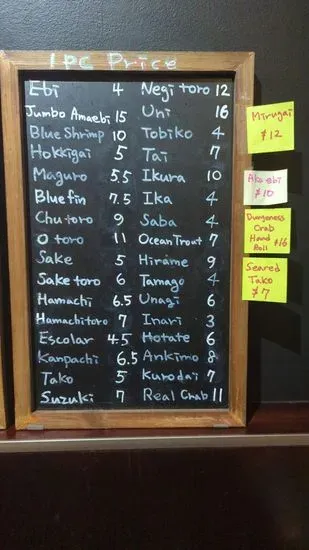 1PC Price
Ebi 4
Jumbo Amaebi 15
Blue Shrimp 10
Hokkigai 5
Maguro 5.5
Bluefin 7.5
Chutoro 9
O toro 11
Sake 5
Sake toro 6
Hamachi 6.5
Hamachitoro 7
Escolar 4.5
Kanpachi 6.5
Tako 5
Suzuki 7
Negitoro 12
Uni 16
Tobiko 4
Tai 7
Ikura 10
Ika 4
Saba 4
Ocean Trout 7
Hirame 9
Tamago 4
Unagi 6
Inari 3
Hotate 6
Ankimo 8
Kurodai 7
Real Crab 11
Mirugai
$12
Aka ebi
$10
Dungeness
Crab
Hand
Roll $16
Seared
Tako
$7